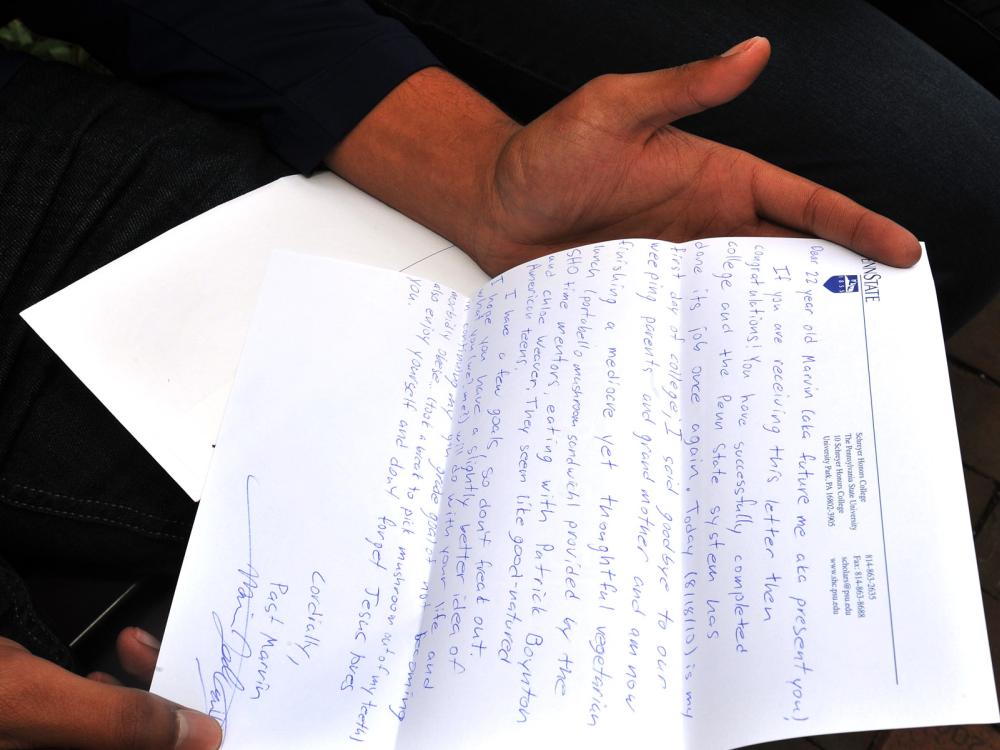 PENNSTATE
1855
Schreyer Honors College
The Pennsylvania State University
10 Schreyer Honors College
University Park, PA 16802-3905
814-863-2635
Fax: 814-863-8688
scholars@psu.edu
www.shc.psu.edu
Dear 22 year old Marvin (aka future me aka present you)
If you are receiving this letter then
congratulations! You have successfully completed
college and the Penn State system has
done its job once again. Today (8/18/10) is my
first day of college; I said goodbye to our
weeping parents and grandmother and am now
finishing a mediocre yet thoughtful vegetarian
lunch (portabello mushroom sandwich) provided by the
SHO time mentors, eating with Patrick Boynton
and Chloe Weaver. They seem like good-natured
American teens.
I have a few goals, so don't freak out.
I hope you have a slightly better idea of
what you (we/me) will do with your life and
in continuing my grade goal of not becoming
morbidly obese. (took a break to pick mushroom out of my teeth)
also enjoy yourself and don't forget Jesus loves
you.
Cordially,
Past Marvin